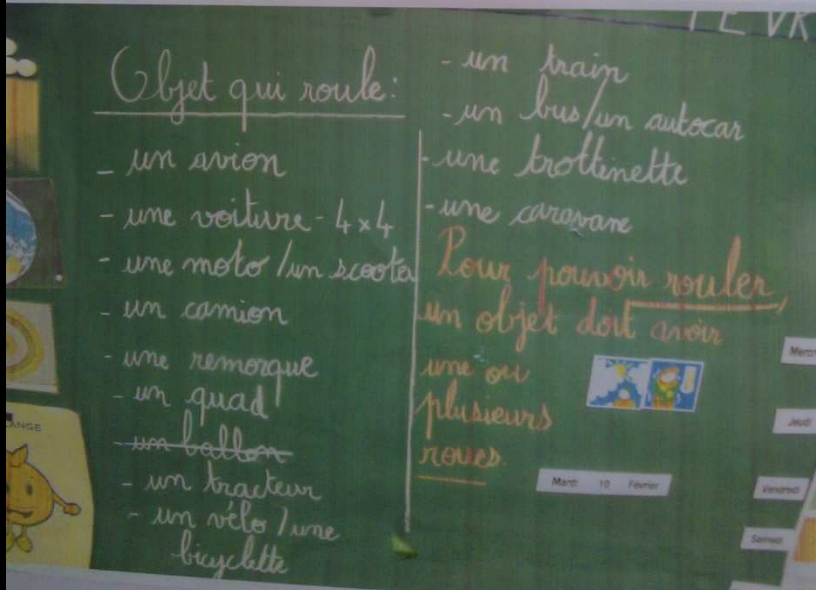 Objet qui roule:
- un avion
- une voiture - 4x4
- une moto / un scooter
- un camion
- une remorque
- un quad
- un ballon
- un tracteur
- un vélo / une
bicyclette
- un train
- un bus / un autocar
- une trottinette
- une caravane
Pour pouvoir rouler,
un objet doit avoir
une ou
plusieurs
roues.
Mardi 10 Février
Jeudi
Vendredi
Samedi